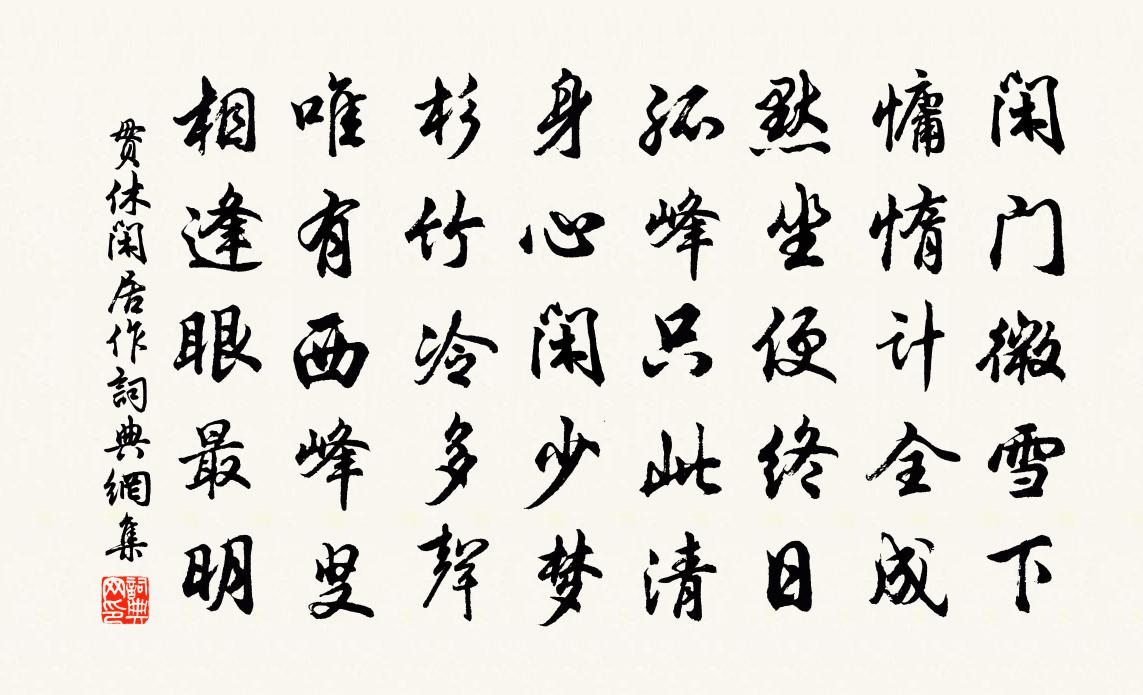 闲门微雪下
慵惰计全成
默坐便终日
孤峰只此清
身心闲少梦
杉竹冷多聲
唯有西峰叟
相逢眼最明
贯休闲居作詞典網集
詞典网印